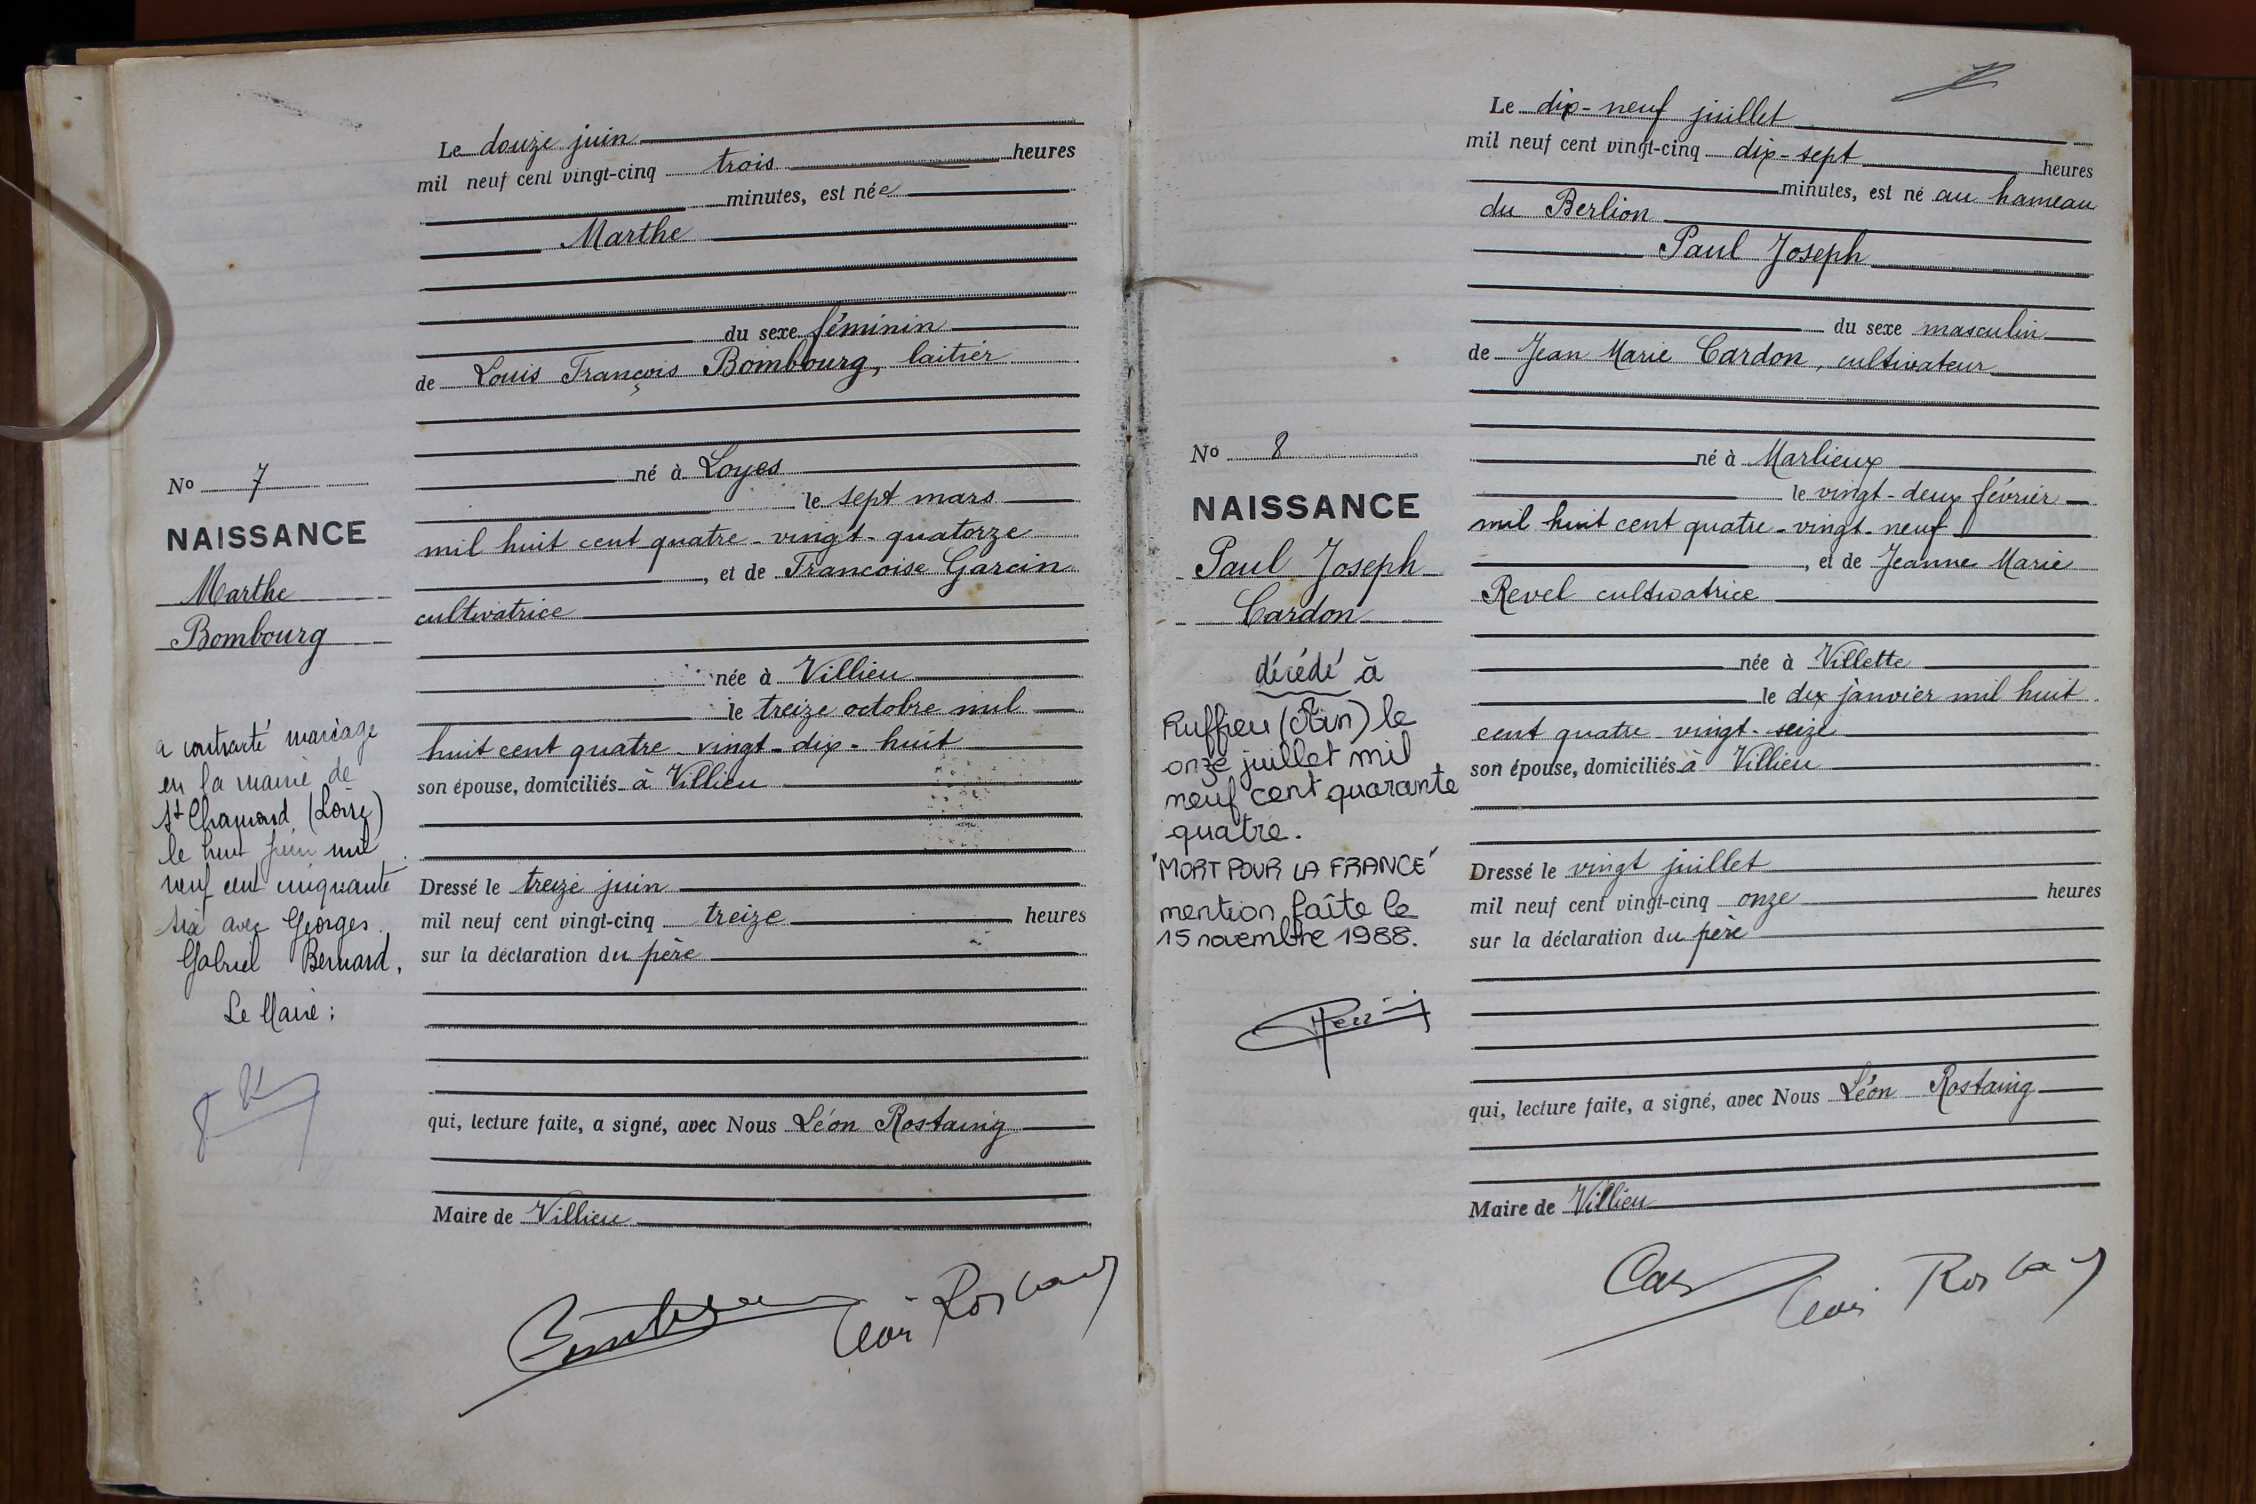 Le douze juin
mil neuf cent vingt-cinq trois heures
minutes, est née
Marthe
du sexe féminin
de Louis François Bombourg, laitier
né à Loyes
le sept mars
mil huit cent quatre-vingt-quatorze
, et de Francoise Garcin
cultivatrice
née à Villieu
le treize octobre mil
huit cent quatre-vingt-dix-huit
son épouse, domiciliés à Villieu
Dressé le treize juin
mil neuf cent vingt-cinq treize heures
sur la déclaration du père
qui, lecture faite, a signé, avec Nous Léon Rostaing
Maire de Villieu
No 7
NAISSANCE
Marthe
Bombourg
a contracté mariage
en la mairie de
St Chamond (Loire)
le juin mil
neuf cent cinquante
six avec Georges
Gabriel Bernard,
Le Maire :
Le dix-neuf juillet
mil neuf cent vingt-cinq dix-sept heures
minutes, est né au hameau
du Berlion
Paul Joseph
du sexe masculin
de Jean Marie Cardon, cultivateur
né à Marlieux
le vingt-deux février
mil huit cent quatre-vingt-neuf
, et de Jeanne Marie
Revel cultivatrice
née à Villette
le dix janvier mil huit
cent quatre-vingt-seize
son épouse, domiciliés à Villieu
Dressé le vingt juillet
mil neuf cent vingt-cinq onze heures
sur la déclaration du père
qui, lecture faite, a signé, avec Nous Léon Rostaing
Maire de Villieu
No 8
NAISSANCE
Paul Joseph
Cardon
décédé à
Ruffieu (Ain) le
onze juillet mil
neuf cent quarante
quatre.
"MORT POUR LA FRANCE"
mention faîte le
15 novembre 1988.